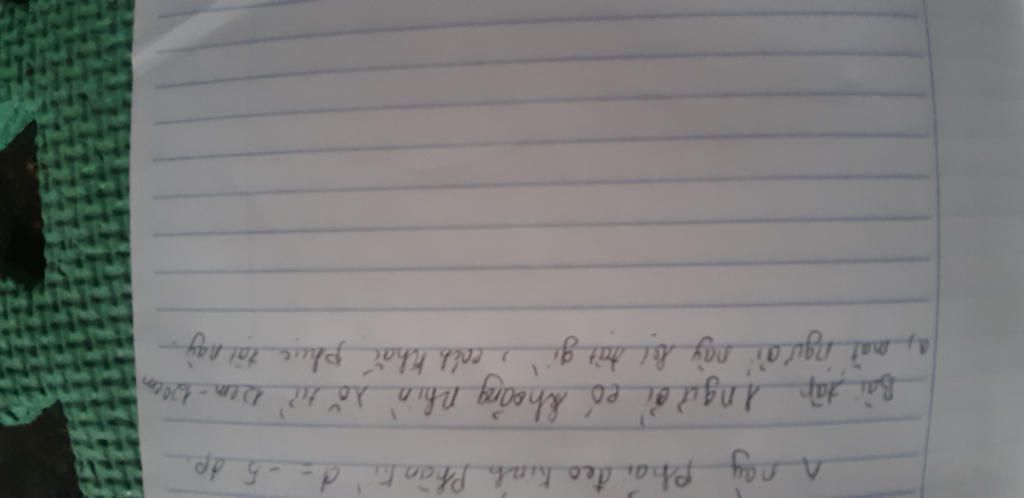 n này phải đeo kính phân kì d = -5 dp.
Bài tập 1 người có khoảng nhìn rõ từ 12cm - 120cm
a, mắt người này bị tật gì, cách khắc phục tật này.